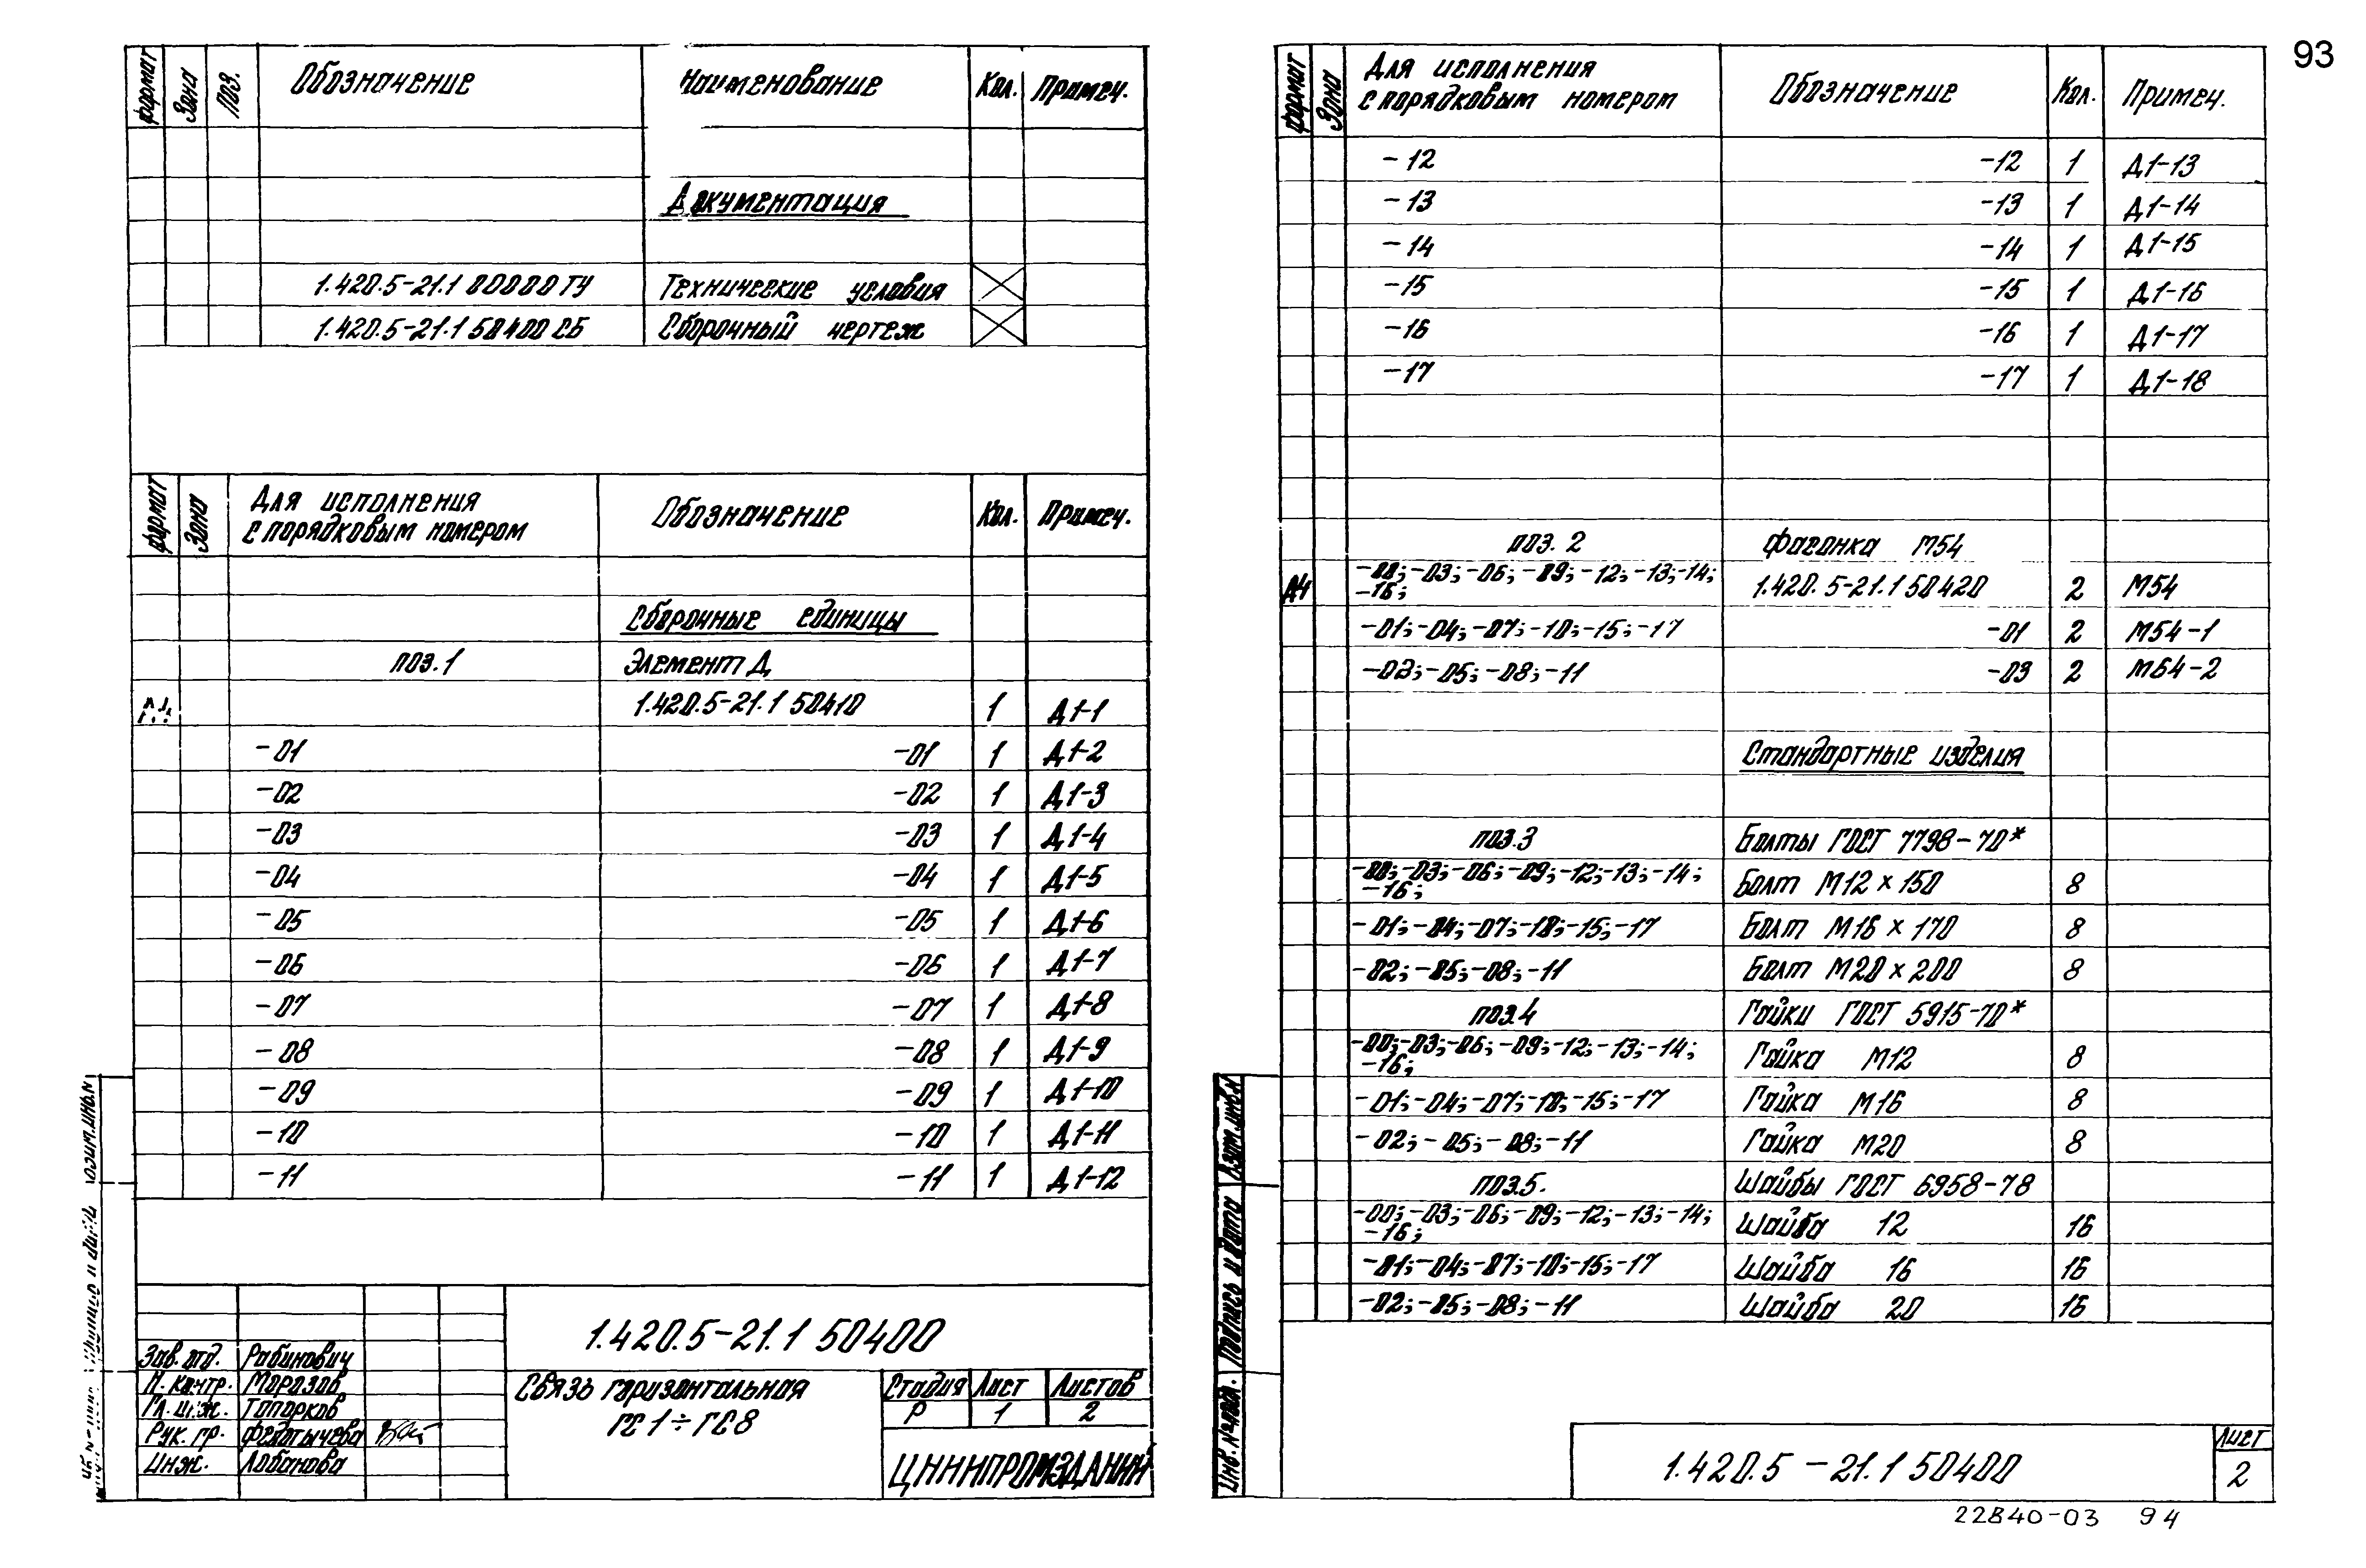 93
формат Зона Поз. Обозначение Наименование Кол. Примеч.
Документация
1.420.5-21.1 00000 ТУ Технические условия
1.420.5-21.1 50400 СБ Сборочный чертеж
формат Зона Для исполнения с порядковым номером Обозначение Кол. Примеч.
Сборочные единицы
поз.1 Элемент Д
1.420.5-21.1 50410 1 Д1-1
-01 -01 1 Д1-2
-02 -02 1 Д1-3
-03 -03 1 Д1-4
-04 -04 1 Д1-5
-05 -05 1 Д1-6
-06 -06 1 Д1-7
-07 -07 1 Д1-8
-08 -08 1 Д1-9
-09 -09 1 Д1-10
-10 -10 1 Д1-11
-11 -11 1 Д1-12
1.420.5-21.1 50400
Зав. отд. Рабинович
Н. контр. Морозов
Гл. инж. Топорков
Рук. гр. Федотычева
Инж. Лобанова
Связь горизонтальная
ГС1÷ГС8
Стадия Лист Листов
Р 1 2
ЦНИИПРОМЗДАНИЙ
формат Зона Для исполнения с порядковым номером Обозначение Кол. Примеч.
-12 -12 1 Д1-13
-13 -13 1 Д1-14
-14 -14 1 Д1-15
-15 -15 1 Д1-16
-16 -16 1 Д1-17
-17 -17 1 Д1-18
поз. 2 Фасонка М54
А4 -00; -03; -06; -09; -12; -13; -14; -16; 1.420.5-21.1 50420 2 М54
-01; -04; -07; -10; -15; -17 -01 2 М54-1
-02; -05; -08; -11 -03 2 М54-2
Стандартные изделия
поз.3 Болты ГОСТ 7798-70*
-00; -03; -06; -09; -12; -13; -14; -16; Болт М12×150 8
-01; -04; -07; -10; -15; -17 Болт М16×170 8
-02; -05; -08; -11 Болт М20×200 8
поз.4 Гайки ГОСТ 5915-70*
-00; -03; -06; -09; -12; -13; -14; -16; Гайка М12 8
-01; -04; -07; -10; -15; -17 Гайка М16 8
-02; -05; -08; -11 Гайка М20 8
поз.5. Шайбы ГОСТ 6958-78
-00; -03; -06; -09; -12; -13; -14; -16; Шайба 12 16
-01; -04; -07; -10; -15; -17 Шайба 16 16
-02; -05; -08; -11 Шайба 20 16
Инв. № подл. Подпись и дата Взам. инв. №
1.420.5-21.1 50400
Лист
2
22840-03 94